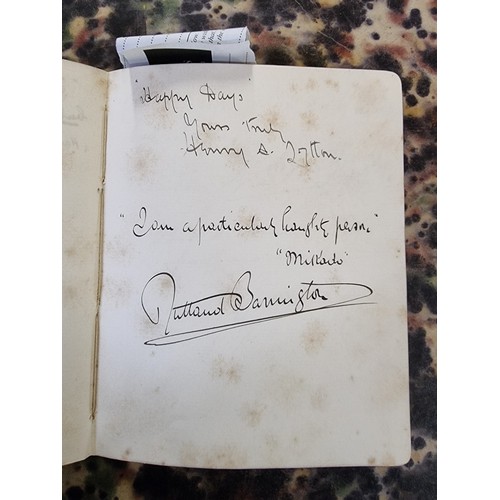 "Happy Days
Yours truly
Henry A. Lytton.
"I am a particularly haughty person"
"Mikado"
Rutland Barrington